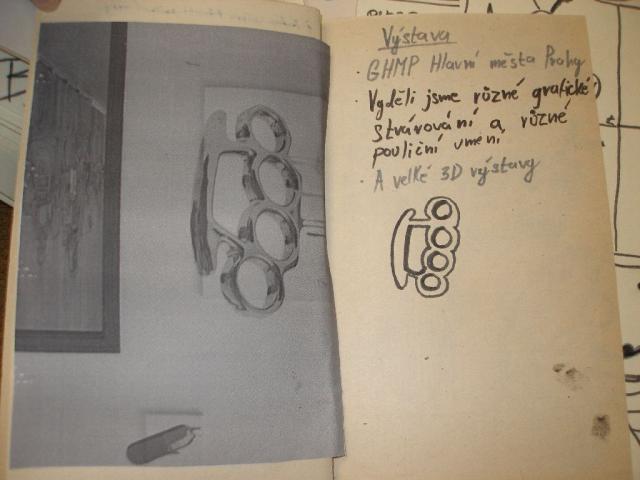 Výstava
· GHMP Hlavní města Prahy
· Vyděli jsme různé grafické
stvárování a různé
pouliční umění
· A velké 3D výstavy